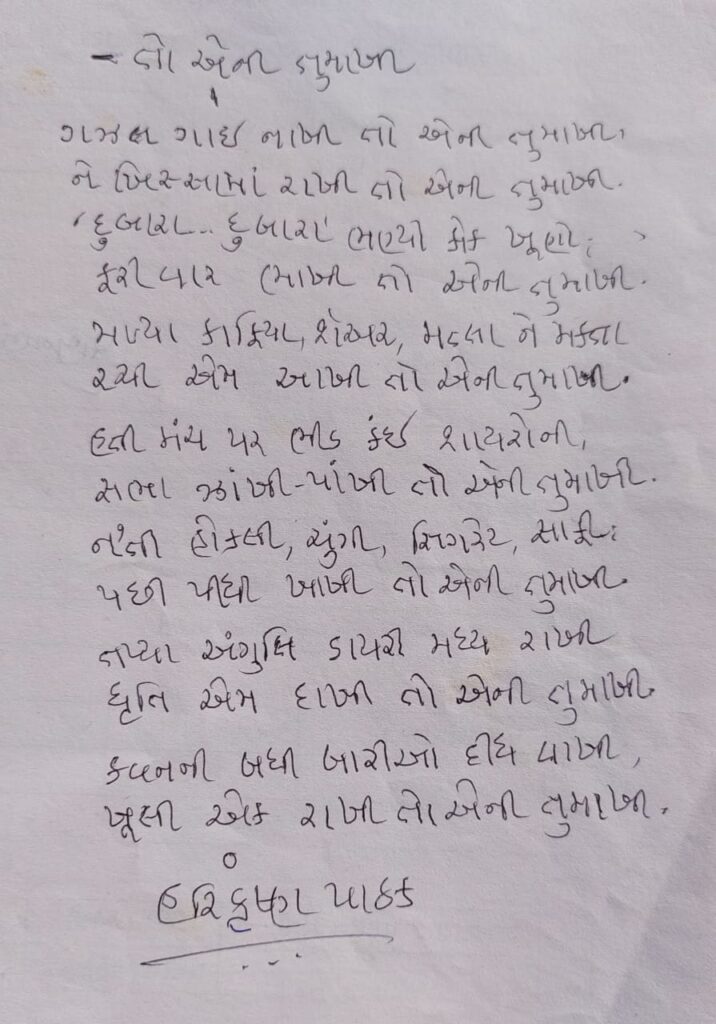 - તો એની તુમાખી
ગઝલ ગાઈ નાખી તો એની તુમાખી,
ને ખિસ્સામાં રાખી તો એની તુમાખી.
'દુબારા... દુબારા' ભણ્યો કોક ખૂણો;
ફરી વાર ભાખી તો એની તુમાખી.
મળ્યા કાફિયા, શેઅર, મત્લા ને મક્તા
રચી એમ આખી તો એની તુમાખી.
હતી મંચ પર ભીડ કંઈ શાયરોની,
સભા ઝાંખી-પાંખી તો એની તુમાખી.
ન'તી હોકલી, ચુંગી, સિગરેટ, સાકી;
પછી પીધી ખાખી તો એની તુમાખી.
તપ્યા અંગુલિ ડાયરી મધ્ય રાખી
ધૃતિ એમ દાખી તો એની તુમાખી.
કવનની બધી બારીઓ દીધ વાખી,
ખૂલી એક રાખી તો એની તુમાખી.
હરિકૃષ્ણ પાઠક